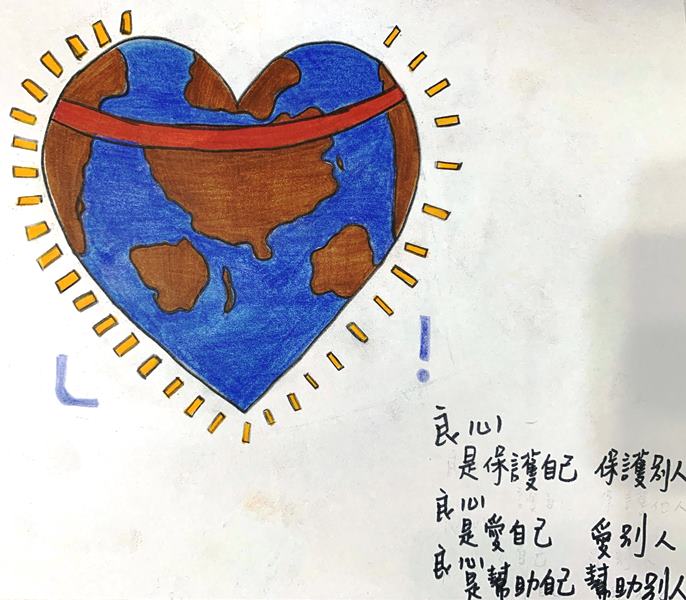 良心
是保護自己 保護別人
良心
是愛自己 愛別人
良心
是幫助自己 幫助別人